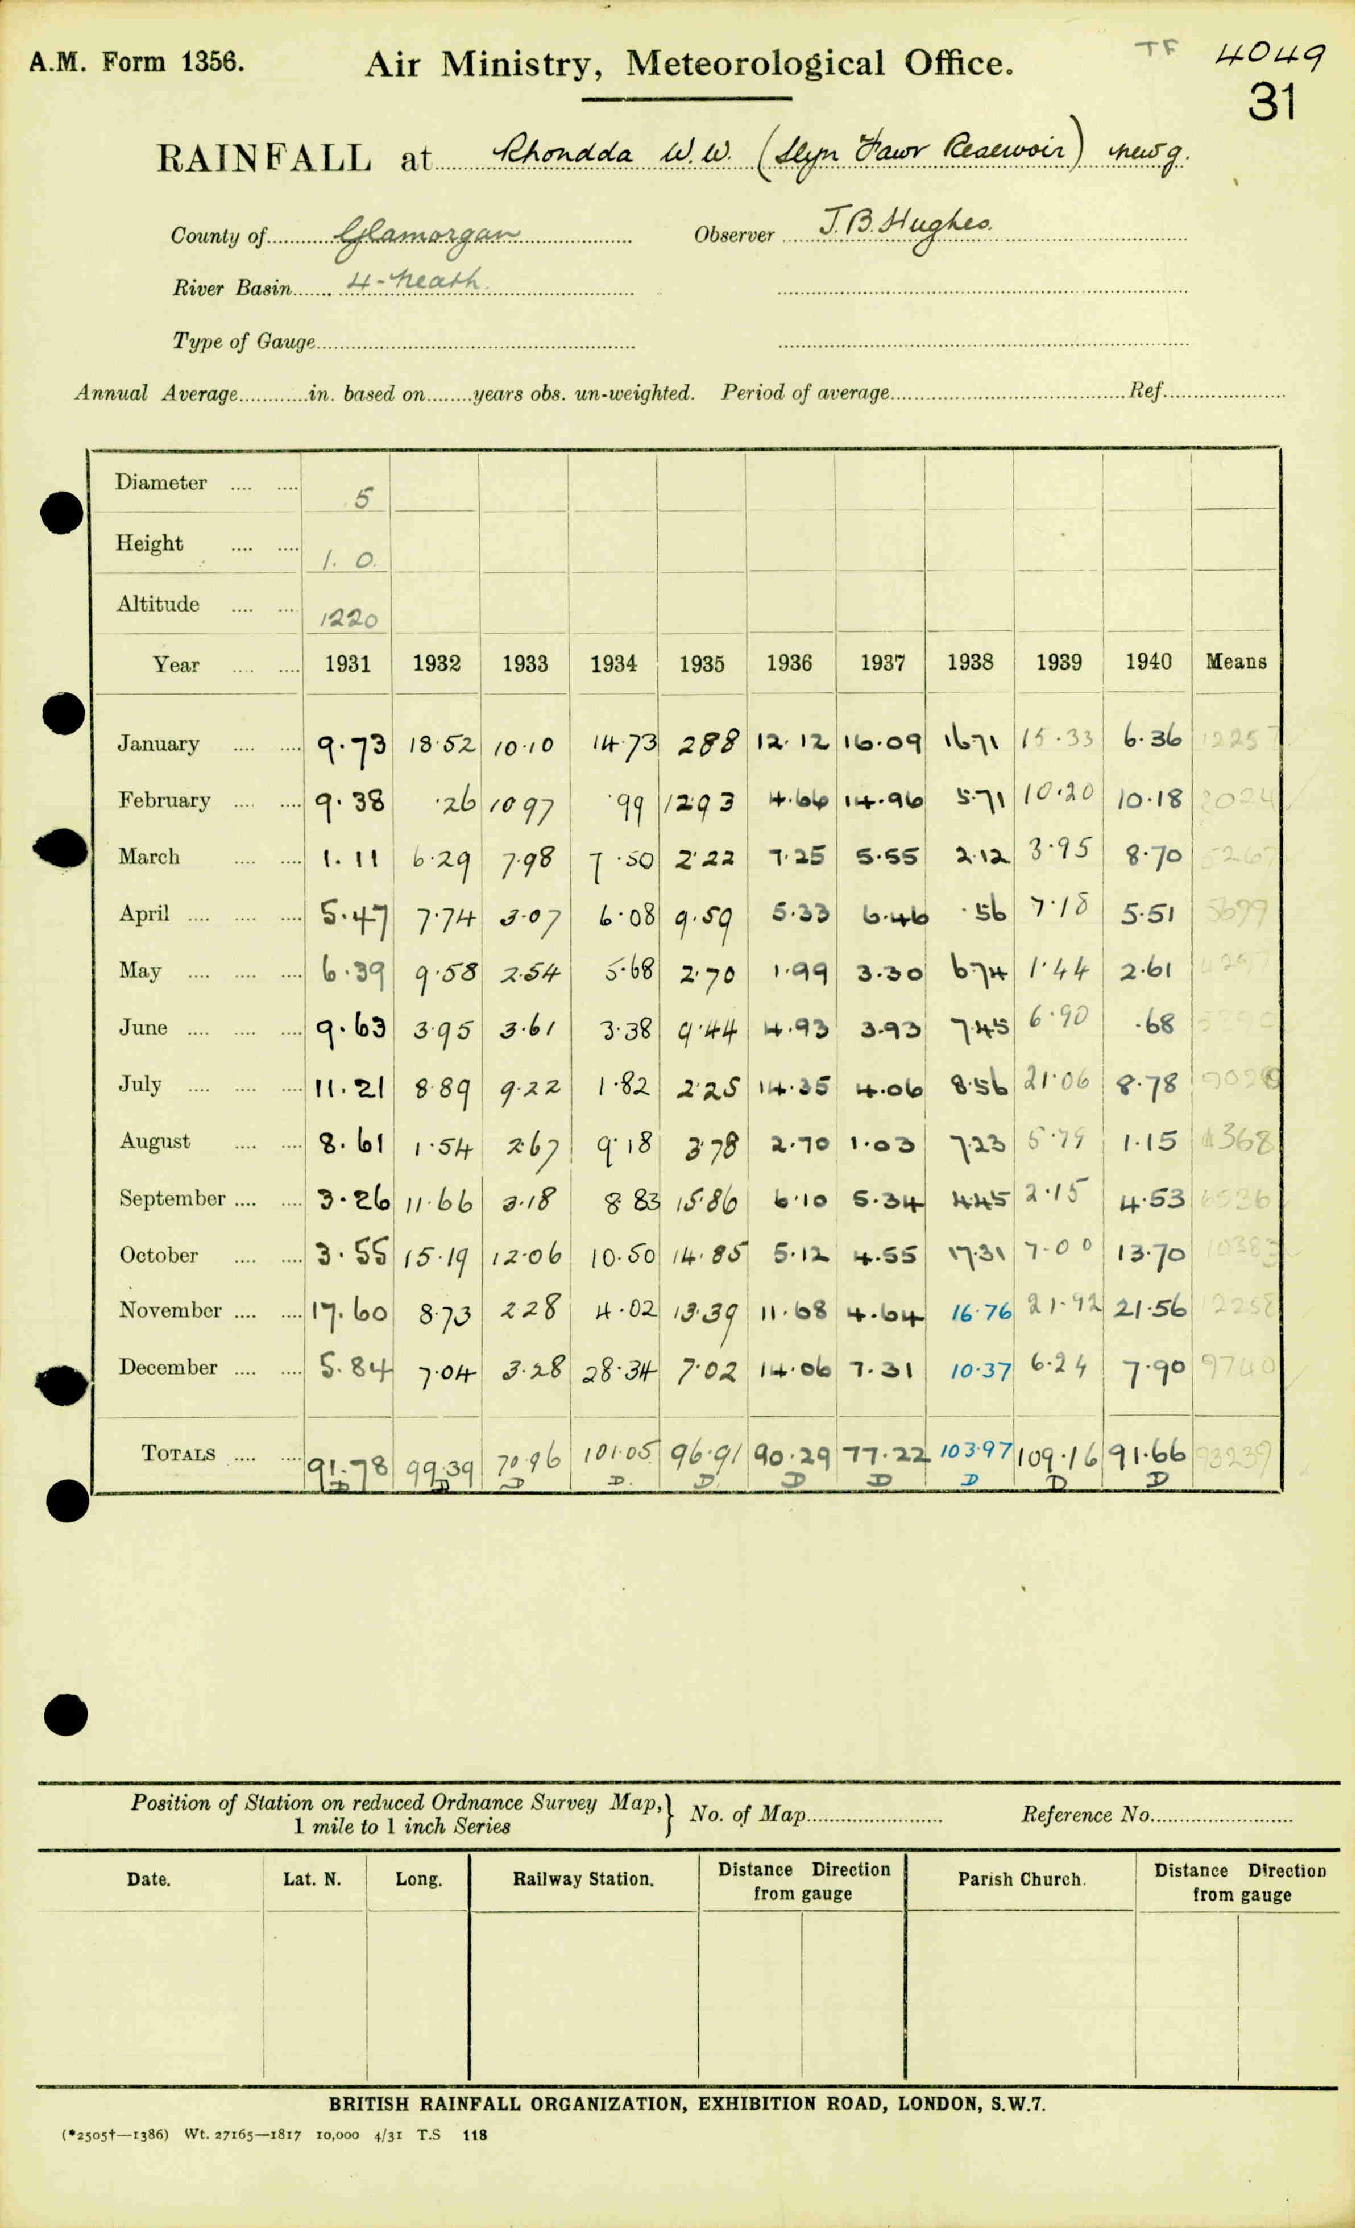 A.M. Form 1356. Air Ministry, Meteorological Office. TF 4049
31
RAINFALL at Rhondda W.W. (Llyn Fawr Reservoir) new g.
County of Glamorgan Observer J.B. Hughes.
River Basin 4-Neath.
Type of Gauge
Annual Average in. based on years obs. un-weighted. Period of average Ref.
Diameter 5
Height 1. 0.
Altitude 1220
Year 1931 1932 1933 1934 1935 1936 1937 1938 1939 1940 Means
January 9.73 18.52 10.10 14.73 2.88 12.12 16.09 16.71 15.33 6.36 12257
February 9.38 .26 10.97 .99 12.93 4.66 14.96 5.71 10.20 10.18 8024
March 1.11 6.29 7.98 7.50 2.22 7.25 5.55 2.12 3.95 8.70 5267
April 5.47 7.74 3.07 6.08 9.59 5.33 6.46 .56 7.18 5.51 5699
May 6.39 9.58 2.54 5.68 2.70 1.99 3.30 6.74 1.44 2.61 4297
June 9.63 3.95 3.61 3.38 9.44 4.93 3.93 7.45 6.90 .68 5390
July 11.21 8.89 9.22 1.82 2.25 14.35 4.06 8.56 21.06 8.78 9020
August 8.61 1.54 2.67 9.18 3.78 2.70 1.03 7.23 5.79 1.15 4368
September 3.26 11.66 3.18 8.83 15.86 6.10 5.34 4.45 2.15 4.53 6536
October 3.55 15.19 12.06 10.50 14.85 5.12 4.55 17.31 7.00 13.70 10383
November 17.60 8.73 2.28 4.02 13.39 11.68 4.64 16.76 21.92 21.56 12258
December 5.84 7.04 3.28 28.34 7.02 14.06 7.31 10.37 6.24 7.90 9740
TOTALS 91.78 99.39 70.96 101.05 96.91 90.29 77.22 103.97 109.16 91.66 93239
D D D D. D. D D D D D
Position of Station on reduced Ordnance Survey Map,} No. of Map Reference No.
1 mile to 1 inch Series
Date. Lat. N. Long. Railway Station. Distance Direction from gauge Parish Church. Distance Direction from gauge
BRITISH RAINFALL ORGANIZATION, EXHIBITION ROAD, LONDON, S.W.7.
(*2505†—1386) Wt. 27165—1817 10,000 4/31 T.S 118